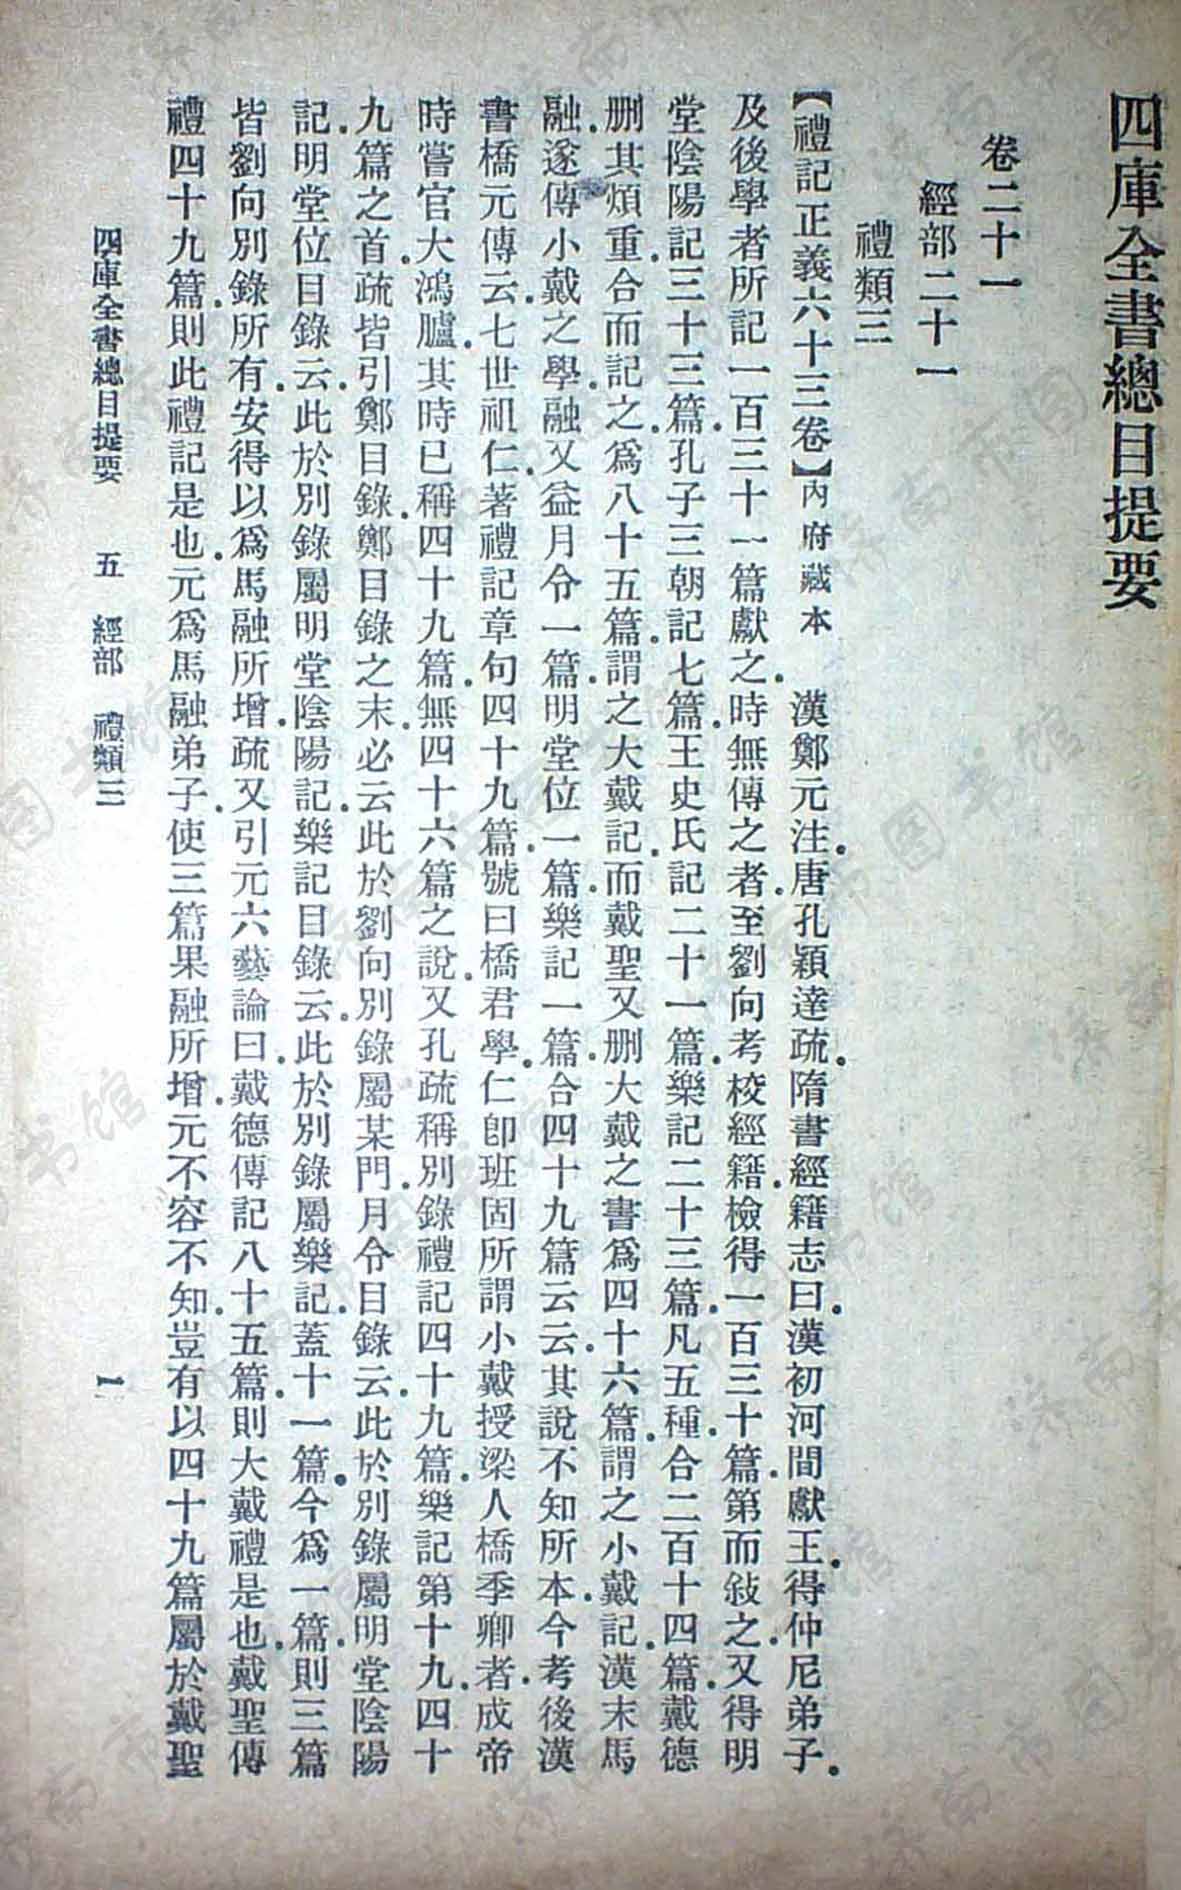 四庫全書總目提要
卷二十一
經部二十一
禮類三
【禮記正義六十三卷】內府藏本　漢鄭元注．唐孔穎達疏．隋書經籍志曰．漢初河間獻王．得仲尼弟子．
及後學者所記一百三十一篇獻之．時無傳之者．至劉向考校經籍．檢得一百三十篇．第而敍之．又得明
堂陰陽記三十三篇．孔子三朝記七篇．王史氏記二十一篇．樂記二十三篇．凡五種．合二百十四篇．戴德
删其煩重．合而記之．爲八十五篇．謂之大戴記．而戴聖又删大戴之書爲四十六篇．謂之小戴記．漢末馬
融．遂傳小戴之學．融又益月令一篇．明堂位一篇．樂記一篇．合四十九篇云云．其說不知所本．今考後漢
書橋元傳云．七世祖仁．著禮記章句四十九篇．號曰橋君學．仁卽班固所謂小戴授梁人橋季卿者．成帝
時嘗官大鴻臚．其時已稱四十九篇．無四十六篇之說．又孔疏稱別錄禮記四十九篇．樂記第十九．四十
九篇之首．疏皆引鄭目錄．鄭目錄之末．必云此於劉向別錄屬某門．月令目錄云．此於別錄屬明堂陰陽
記．明堂位目錄云．此於別錄屬明堂陰陽記．樂記目錄云．此於別錄屬樂記．蓋十一篇．今爲一篇．則三篇
皆劉向別錄所有．安得以爲馬融所增．疏又引元六藝論曰．戴德傳記八十五篇．則大戴禮是也．戴聖傳
禮四十九篇．則此禮記是也．元爲馬融弟子．使三篇果融所增．元不容不知．豈有以四十九篇屬於戴聖
四庫全書總目提要　五　經部　禮類三　一
济南市图书馆